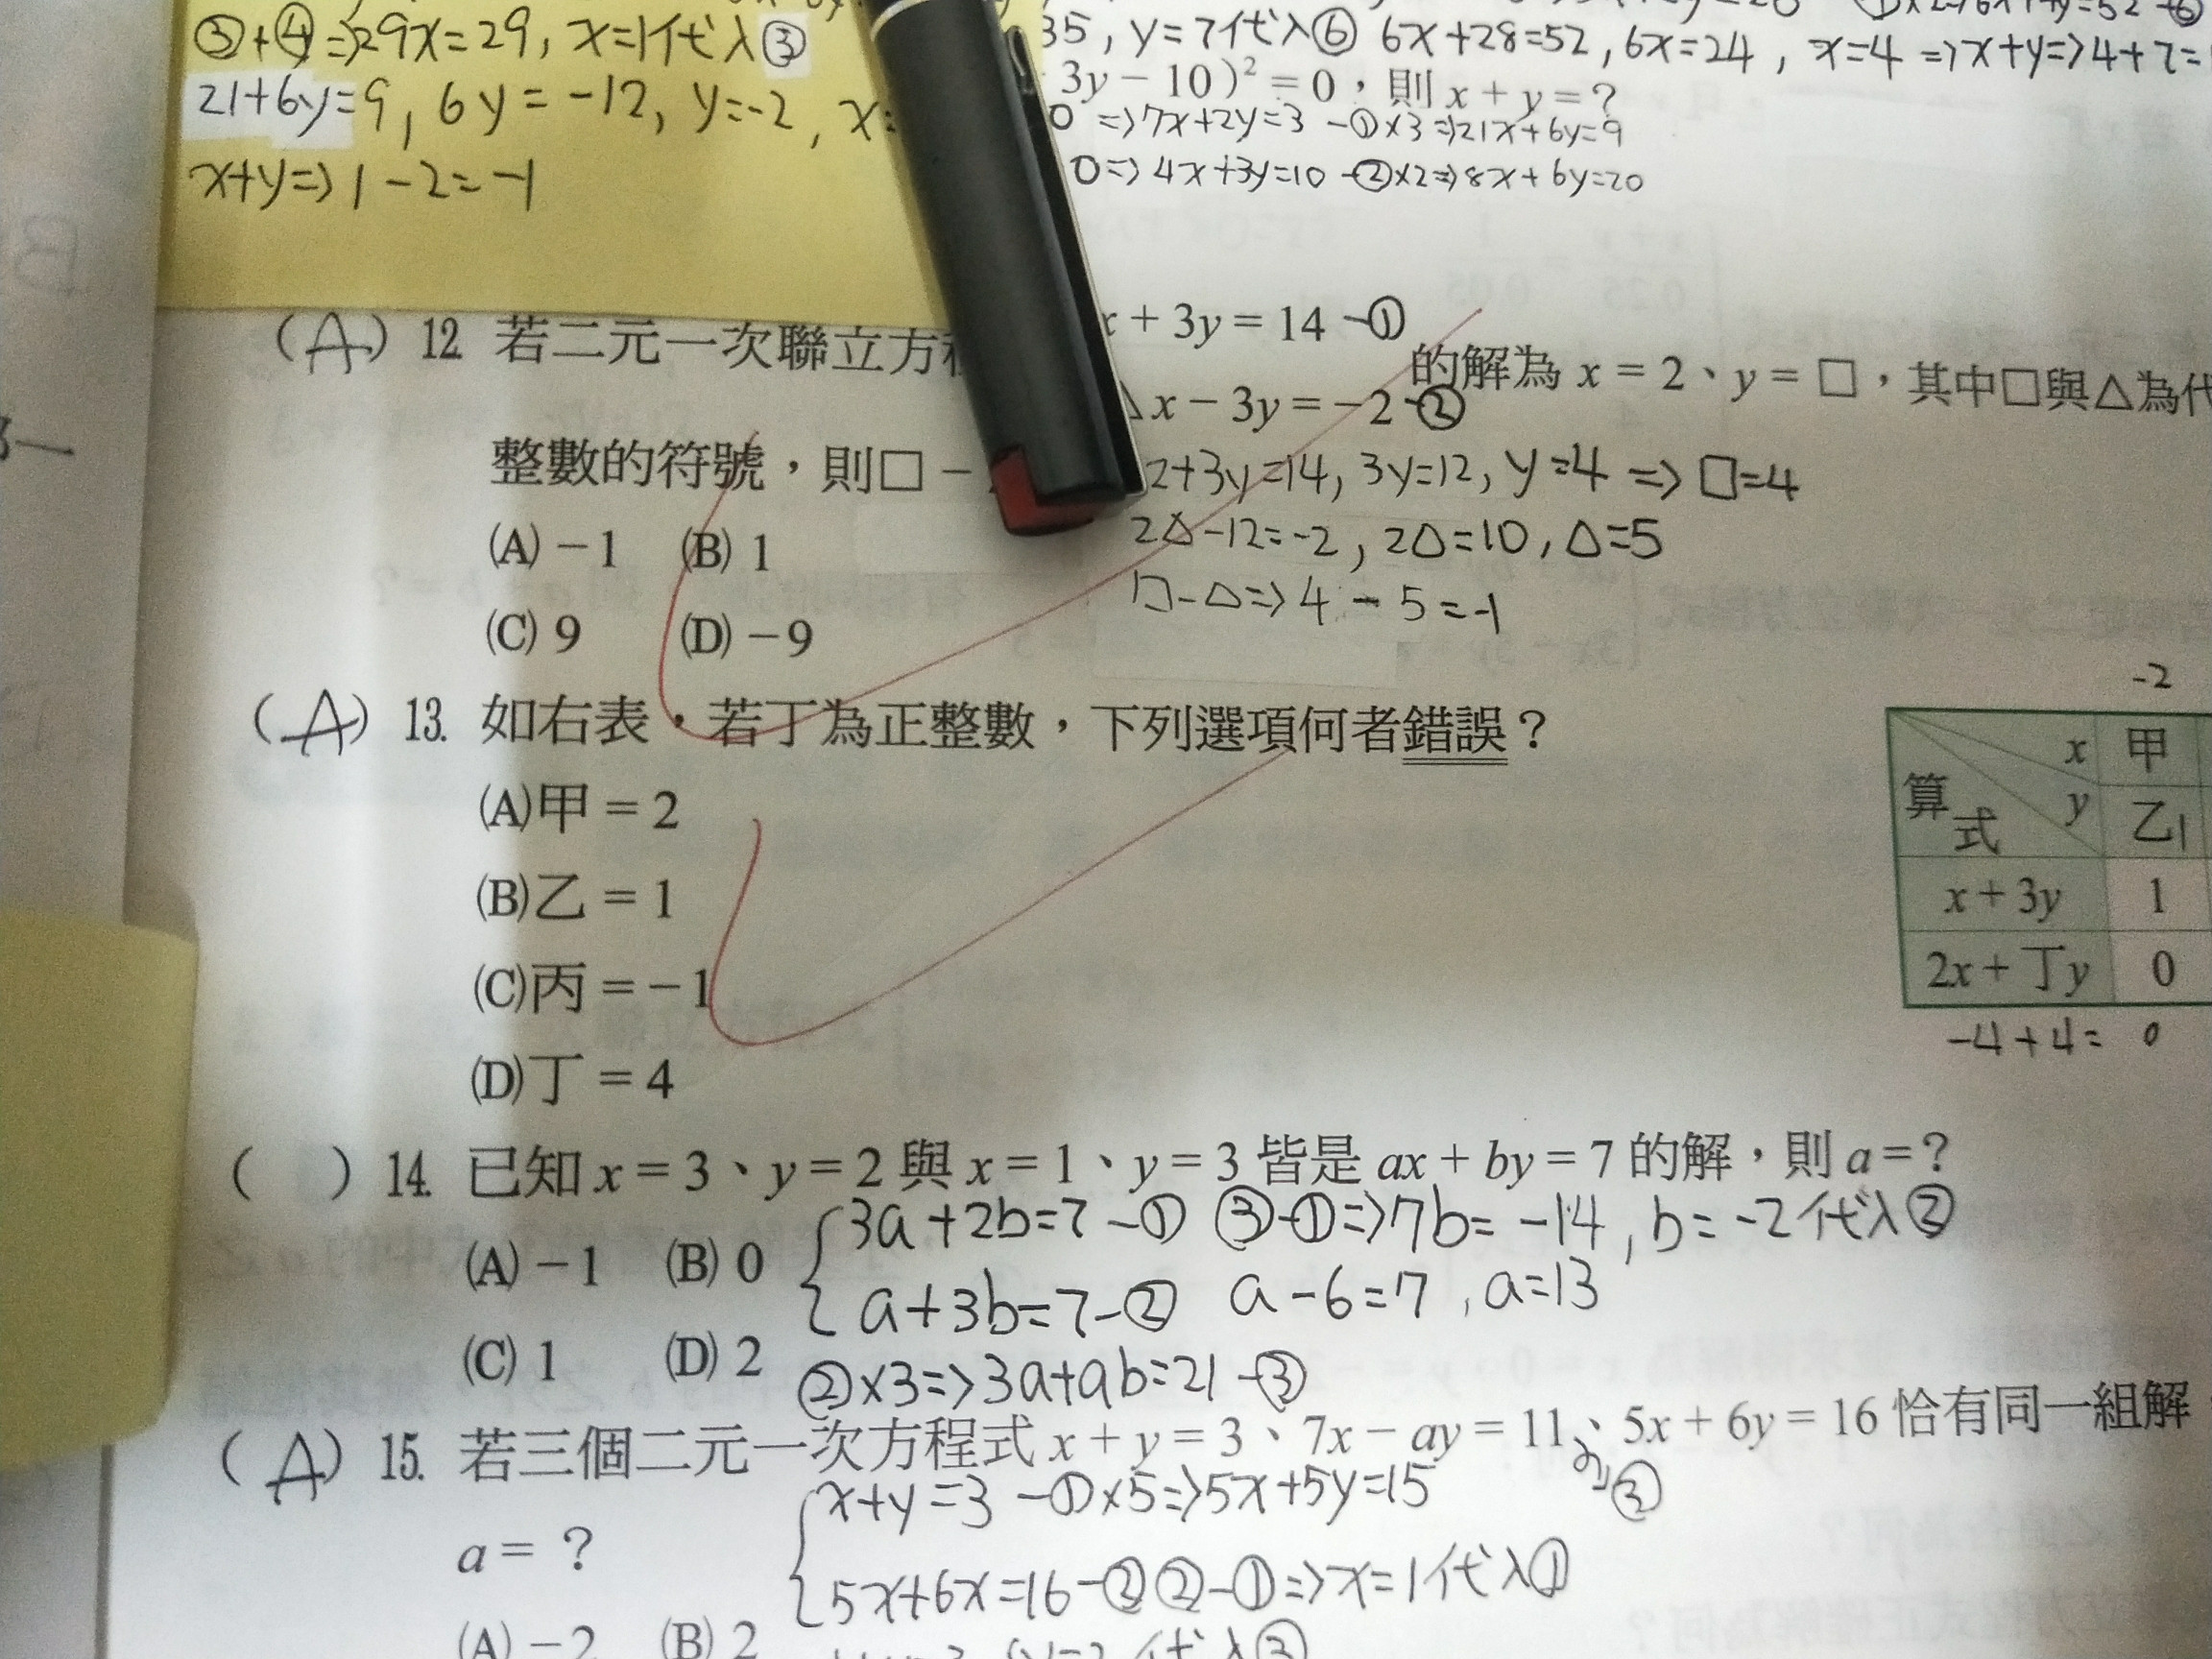 ③+④=>29x=29, x=1代入③
21+6y=9, 6y=-12, y=-2, x=
x+y=>1-2=-1
35, y=7代入⑥ 6x+28=52, 6x=24, x=4 =>x+y=>4+7=
3y-10)²=0,則 x+y=?
0 =>7x+2y=3 -①×3=>21x+6y=9
0=>4x+3y=10 -②×2=>8x+6y=20
(A) 12. 若二元一次聯立方程
x+3y=14 -①
△x-3y=-2 -②
的解為 x=2、y=□,其中□與△為代
整數的符號,則□-
2+3y=14, 3y=12, y=4 => □=4
(A) -1 (B) 1
2△-12=-2, 2△=10, △=5
□-△=>4-5=-1
(C) 9 (D) -9
(A) 13. 如右表,若丁為正整數,下列選項何者錯誤?
(A)甲=2
(B)乙=1
(C)丙=-1
(D)丁=4
-2
x 甲
算式 y 乙 1
x+3y 1
2x+丁y 0
-4+4= 0
( ) 14. 已知 x=3、y=2 與 x=1、y=3 皆是 ax+by=7 的解,則 a=?
3a+2b=7 -① ③-①=>7b=-14, b=-2代入②
(A) -1 (B) 0
a+3b=7-② a-6=7, a=13
(C) 1 (D) 2
②×3=>3a+ab=21 -③
(A) 15. 若三個二元一次方程式 x+y=3、7x-ay=11、5x+6y=16 恰有同一組解
③
x+y=3 -①×5=>5x+5y=15
a=?
5x+6x=16-② ②-①=>x=1代入①
(A) -2 (B) 2
代入③